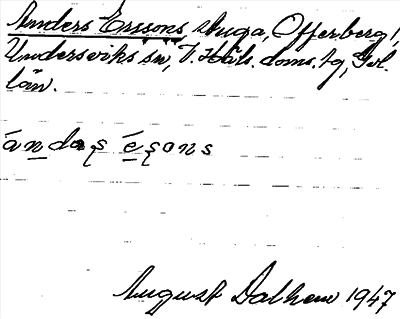 Anders Erssons stuga, Offerberg,
Underseviks sn, V. Häls. doms. tg, Gvl.
län.
án daʂ éʂons
August Dalhem 1947